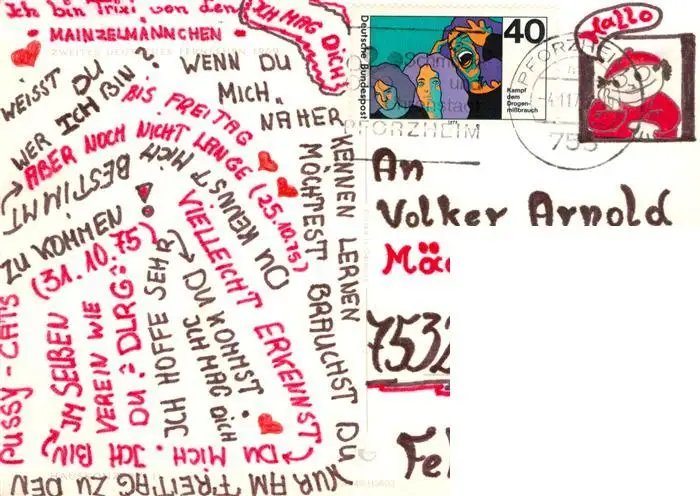 Ich bin Trixi von den
• MAINZELMÄNNCHEN •
ZWEITES DEUTSCHES FERNSEHEN
ICH MAG DICH
WEISST DU
WER ICH BIN?
WENN DU
MICH
NÄHER
KENNEN LERNEN
MÖCHTEST BRAUCHST DU
NUR AM FREITAG ZU DEN
PUSSY-CATS
ZU KOMMEN!
BIS FREITAG
(31.10.75)
ICH HOFFE SEHR
DU KOMMST.
ICH MAG DICH
DU KENNST MICH
BESTIMMT
ABER NOCH NICHT LANGE (25.10.75)
VIELLEICHT ERKENNST
DU MICH. ICH BIN
IM SELBEN
VEREIN WIE
DU? DLRG?
Deutsche Bundespost
40
Kampf
dem
Drogen-
mißbrauch
PFORZHEIM
PFORZHEIM
753
Hallo
An
Volker Arnold
7532